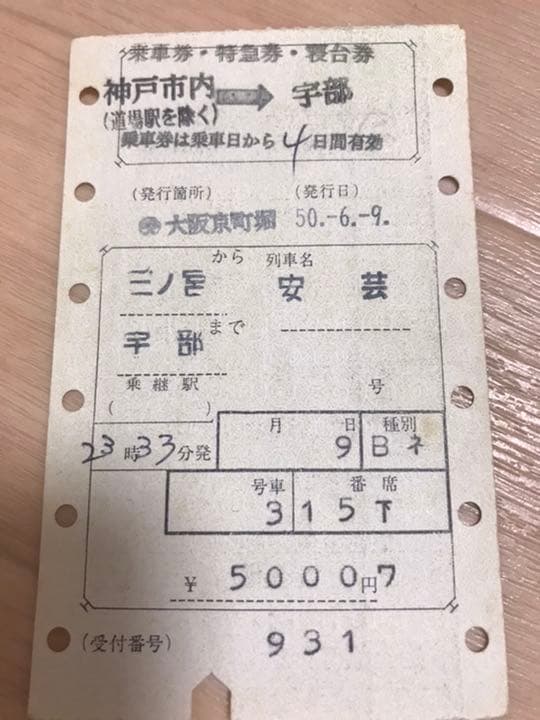 乗車券・特急券・寝台券
神戸市内 → 宇部
(道場駅を除く)
乗車券は乗車日から4日間有効
(発行箇所) (発行日)
大阪京町堀 50.-6.-9.
三ノ宮 から 列車名
安芸
宇部 まで
乗継駅 号
( )
23時33分発 月 9日 種別 Bネ
号車 番席
3 15下
¥ 5000円7
(受付番号) 931